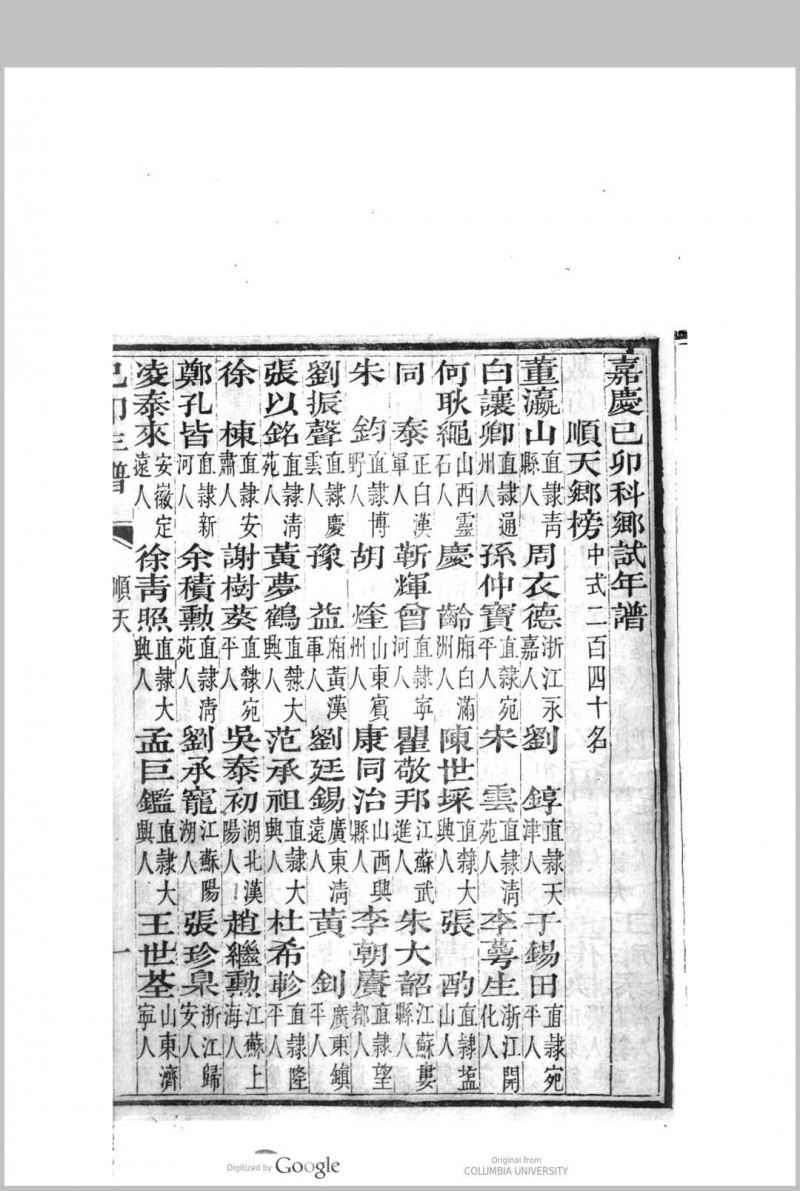 嘉慶己卯科鄉試年譜
順天鄉榜中式二百四十名
董瀛山直隸青縣人 周衣德浙江永嘉人 劉錞直隸天津人 于錫田直隸宛平人
白讓卿直隸通州人 孫仲寶直隸宛平人 宋雲直隸清苑人 李蕚生浙江開化人
何耿繩山西靈石人 慶齡廂白滿洲人 陳世埰直隸大興人 張酌直隸鹽山人
同泰正白漢軍人 靳輝曾直隸寧河人 瞿敬邦江蘇武進人 朱大韶江蘇婁縣人
朱鈞直隸博野人 胡煃山東賓州人 康同治山西興縣人 李朝賡直隸望都人
劉振聲直隸慶雲人 豫益廂黃漢軍人 劉廷錫廣東清遠人 黃釗廣東鎮平人
張以銘直隸清苑人 黃夢鶴直隸大興人 范承祖直隸大興人 杜希軫直隸隆平人
徐棟直隸安肅人 謝樹葵直隸宛平人 吳泰初湖北漢陽人 趙繼勳江蘇上海人
鄭孔皆直隸新河人 余積勳直隸清苑人 劉承寵江蘇陽湖人 張珍臬浙江歸安人
凌泰來安徽定遠人 徐青照直隸大興人 孟巨鑑直隸大興人 王世荃山東濟寧人
己卯年譜 順天 一
Digitized by Google
Original from
COLUMBIA UNIVERSITY